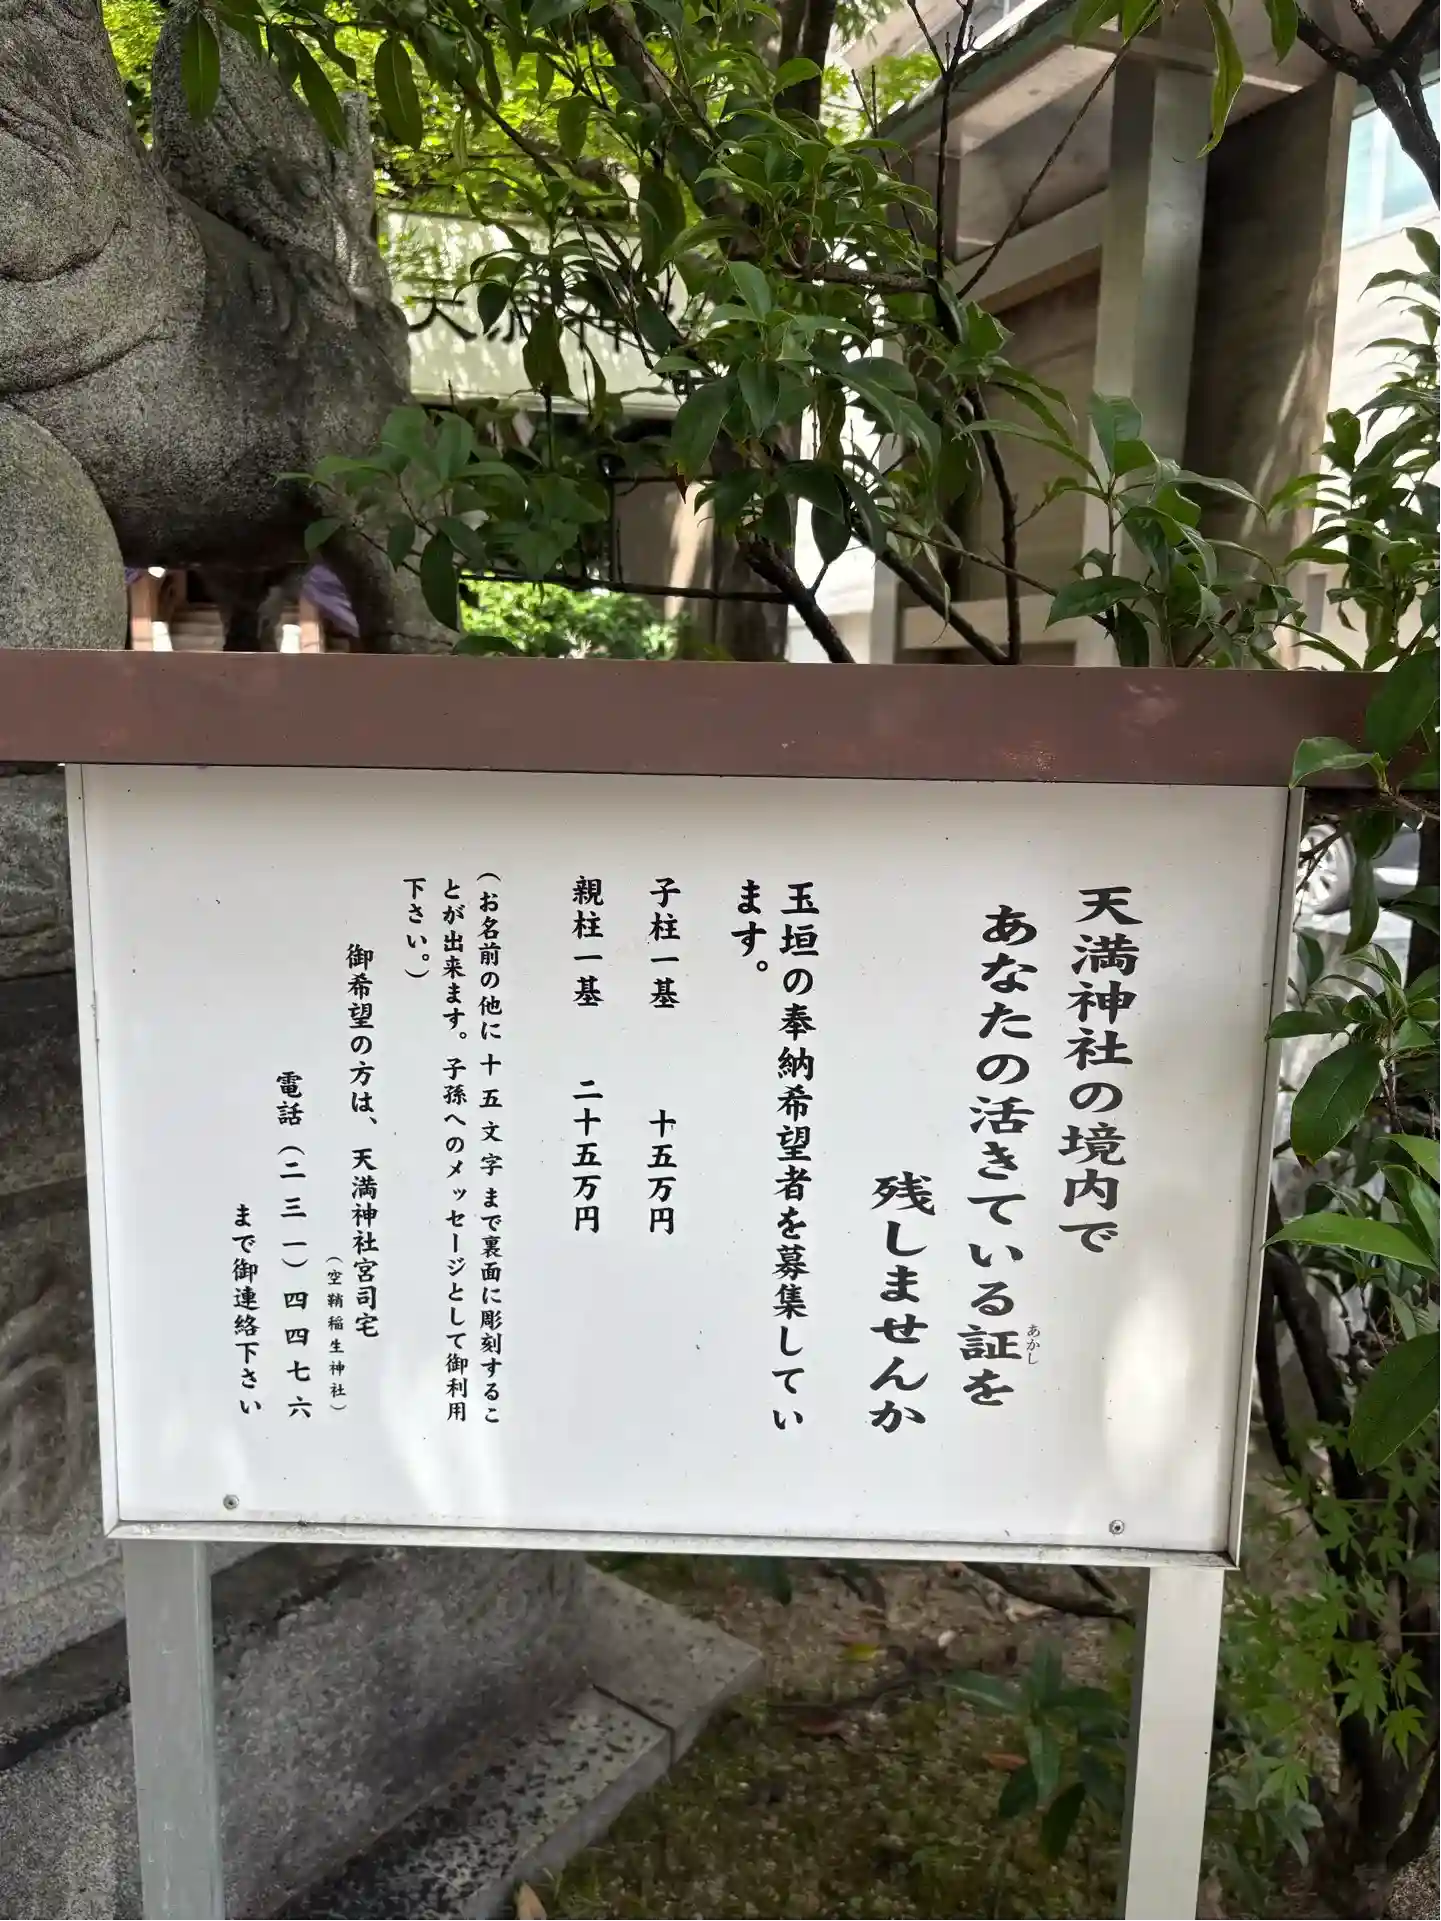 天満神社の境内で
あなたの活きている証を
あかし
残しませんか
玉垣の奉納希望者を募集してい
ます。
子柱一基　十五万円
親柱一基　二十五万円
(お名前の他に十五文字まで裏面に彫刻するこ
とが出来ます。子孫へのメッセージとして御利用
下さい。)
御希望の方は、天満神社宮司宅
(空鞘稲生神社)
電話(二三一)四四七六
まで御連絡下さい